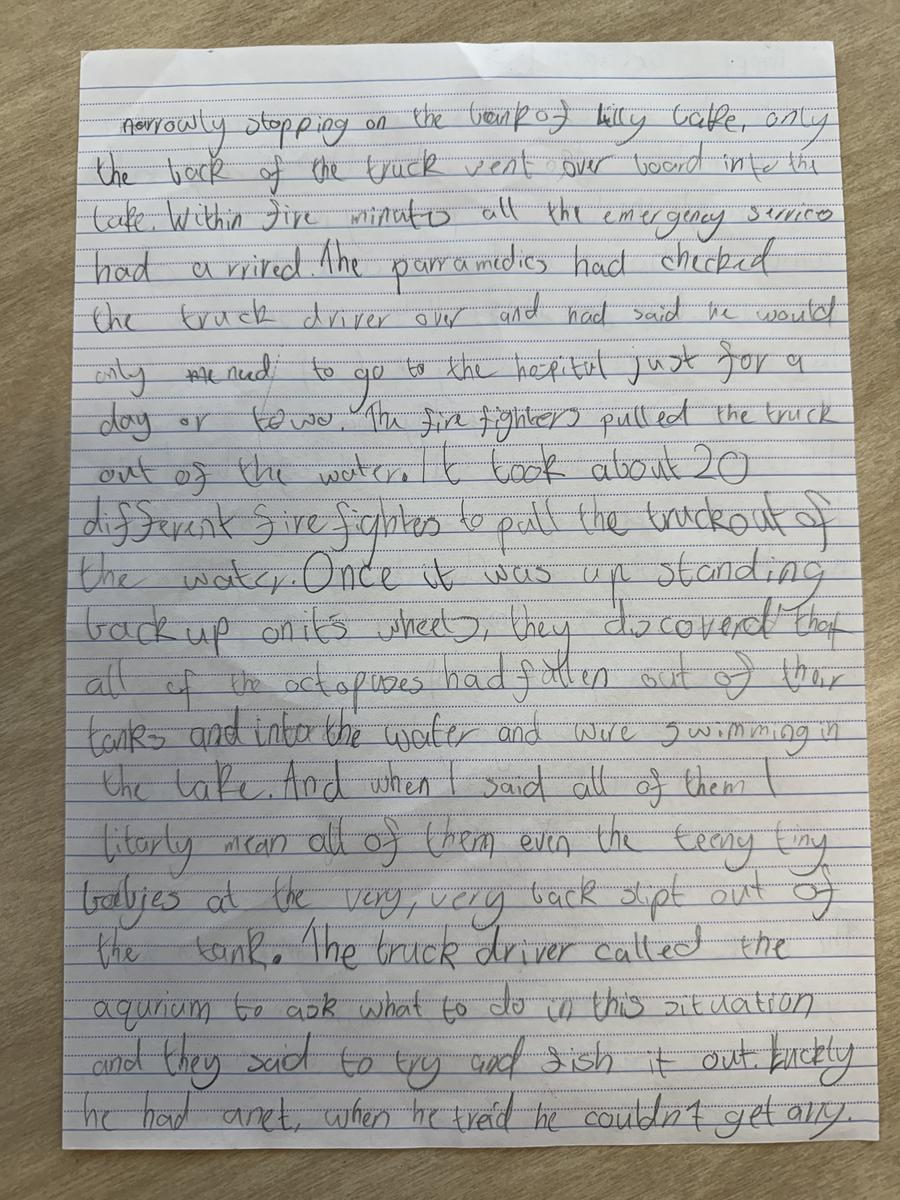 narrowly stopping on the bank of lilly lake, only
the back of the truck went over board into the
lake. Within five minutes all the emergency service
had arrived. The parramedics had checked
the truck driver over and had said he would
only need to go to the hospitul just for a
day or towo. The fire fighters pulled the truck
out of the water. It took about 20
different fire fighters to pull the truck out of
the water. Once it was up standing
back up on it's wheels, they discoverd that
all of the octopuses had fallen out of their
tanks and into the water and were swimming in
the lake. And when I said all of them I
litarly mean all of them even the teeny tiny
babyies at the very, very back slipt out of
the tank. The truck driver called the
aqurium to ask what to do in this situation
and they said to try and fish it out. Luckly
he had a net, when he treid he couldn't get any.